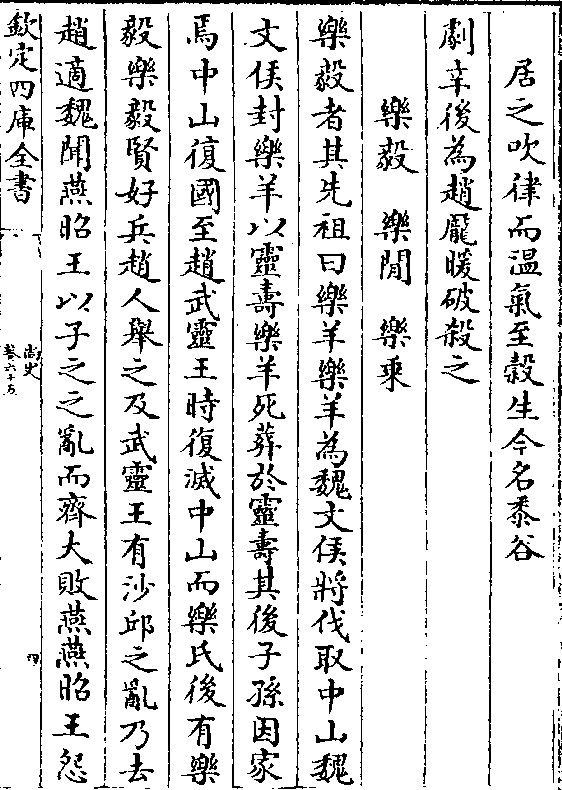 居之吹律而温氣至榖生今名黍谷
劇辛後為趙龎暖破殺之
樂毅　樂閒　樂乗
樂毅者其先祖曰樂羊樂羊為魏文侯將伐取中山魏
文侯封樂羊以靈壽樂羊死葬於靈壽其後子孫因家
焉中山復國至趙武靈王時復滅中山而樂氏後有樂
毅樂毅賢好兵趙人舉之及武靈王有沙邱之亂乃去
趙適魏聞燕昭王以子之之亂而齊大敗燕燕昭王怨
欽定四庫全書
尚史
卷六十五
四